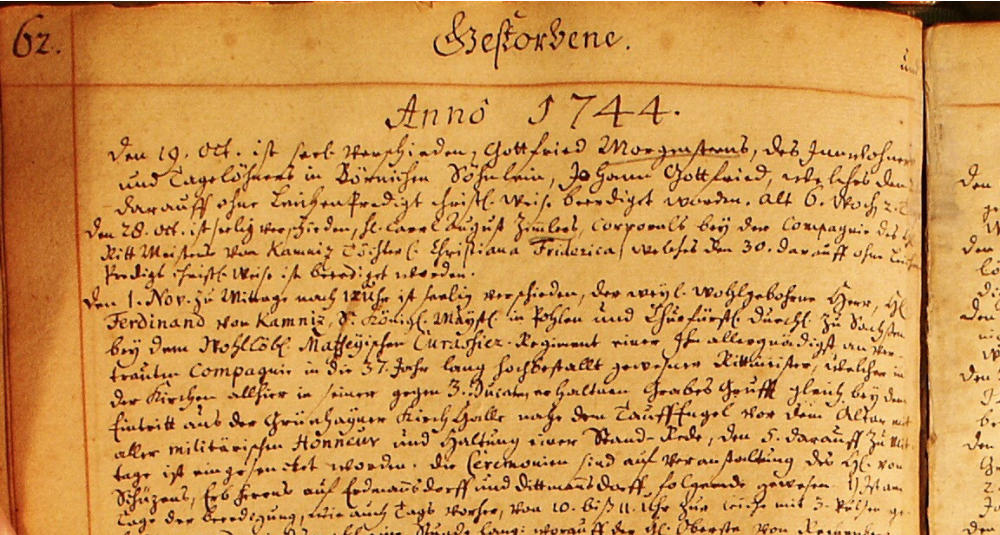 62.
Gestorbene.
Anno 1744.
den 19. Oct. ist seel. verschieden, Gottfried Morgensterns, des Innwohners
und Tagelöhners in Börnichen Söhnlein, Johann Gottfried, welches den
darauff ohne LeichenPredigt christl. Weise beerdiget worden. Alt 6. Woch. 2. T.
den 28. Oct. ist seelig verschieden, H. Carl August Zimlers, Corporals bey der Compagnie des H.
Ritt Meisters von Kamniz Töchterl. Christiana Friderica, welches den 30. darauff ohne Leichen
Predigt christl. Weise ist beerdiget worden.
den 1. Nov. zu Mittage nach 12 Uhr ist seelig verschieden, der weyl. wohlgebohrne Herr, H.
Ferdinand von Kamniz, Sr. Königl. Mayst. in Pohlen und Churfürstl. Durchl. zu Sachsen
bey dem Wohllöbl. Maffeyischen Curassier-Regiment einer Ihn allergnädigst anver-
trauten Compagnie in die 37. Jahr lang hochbestallt gewesener Rittmeister, welcher in
der Kirchen allhier in seiner gegen 3. Ducaten erhaltnen Grabes Grufft gleich bey dem
Eintritt aus der Grünhayner Kirch Halle nahe dem Tauff Engel vor dem Altar mit
aller militärischen Honneur und Haltung einer Stand-Rede, den 5. darauff zu Mit-
tage ist eingesencket worden. Die Ceremonien sind auf Veranstaltung des H. von
Schüzens, Erb Herrns auf Erdmannsdorff und Dittmannsdorff, folgende gewesen. 1) Ist am
Tage der Beerdigung, wie auch Tags vorher, von 10. biß 11. Uhr zur Leiche mit 3. Pulsen ge-
Stunde lang: worauff der H. Oberste von